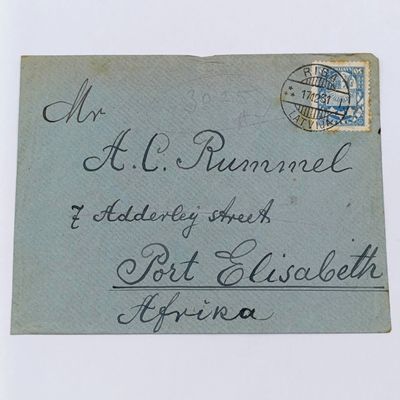 RIGA
17.12.31
LATVIJA
Mr
A. C. Rummel
7 Adderley street
Port Elisabeth
Afrika